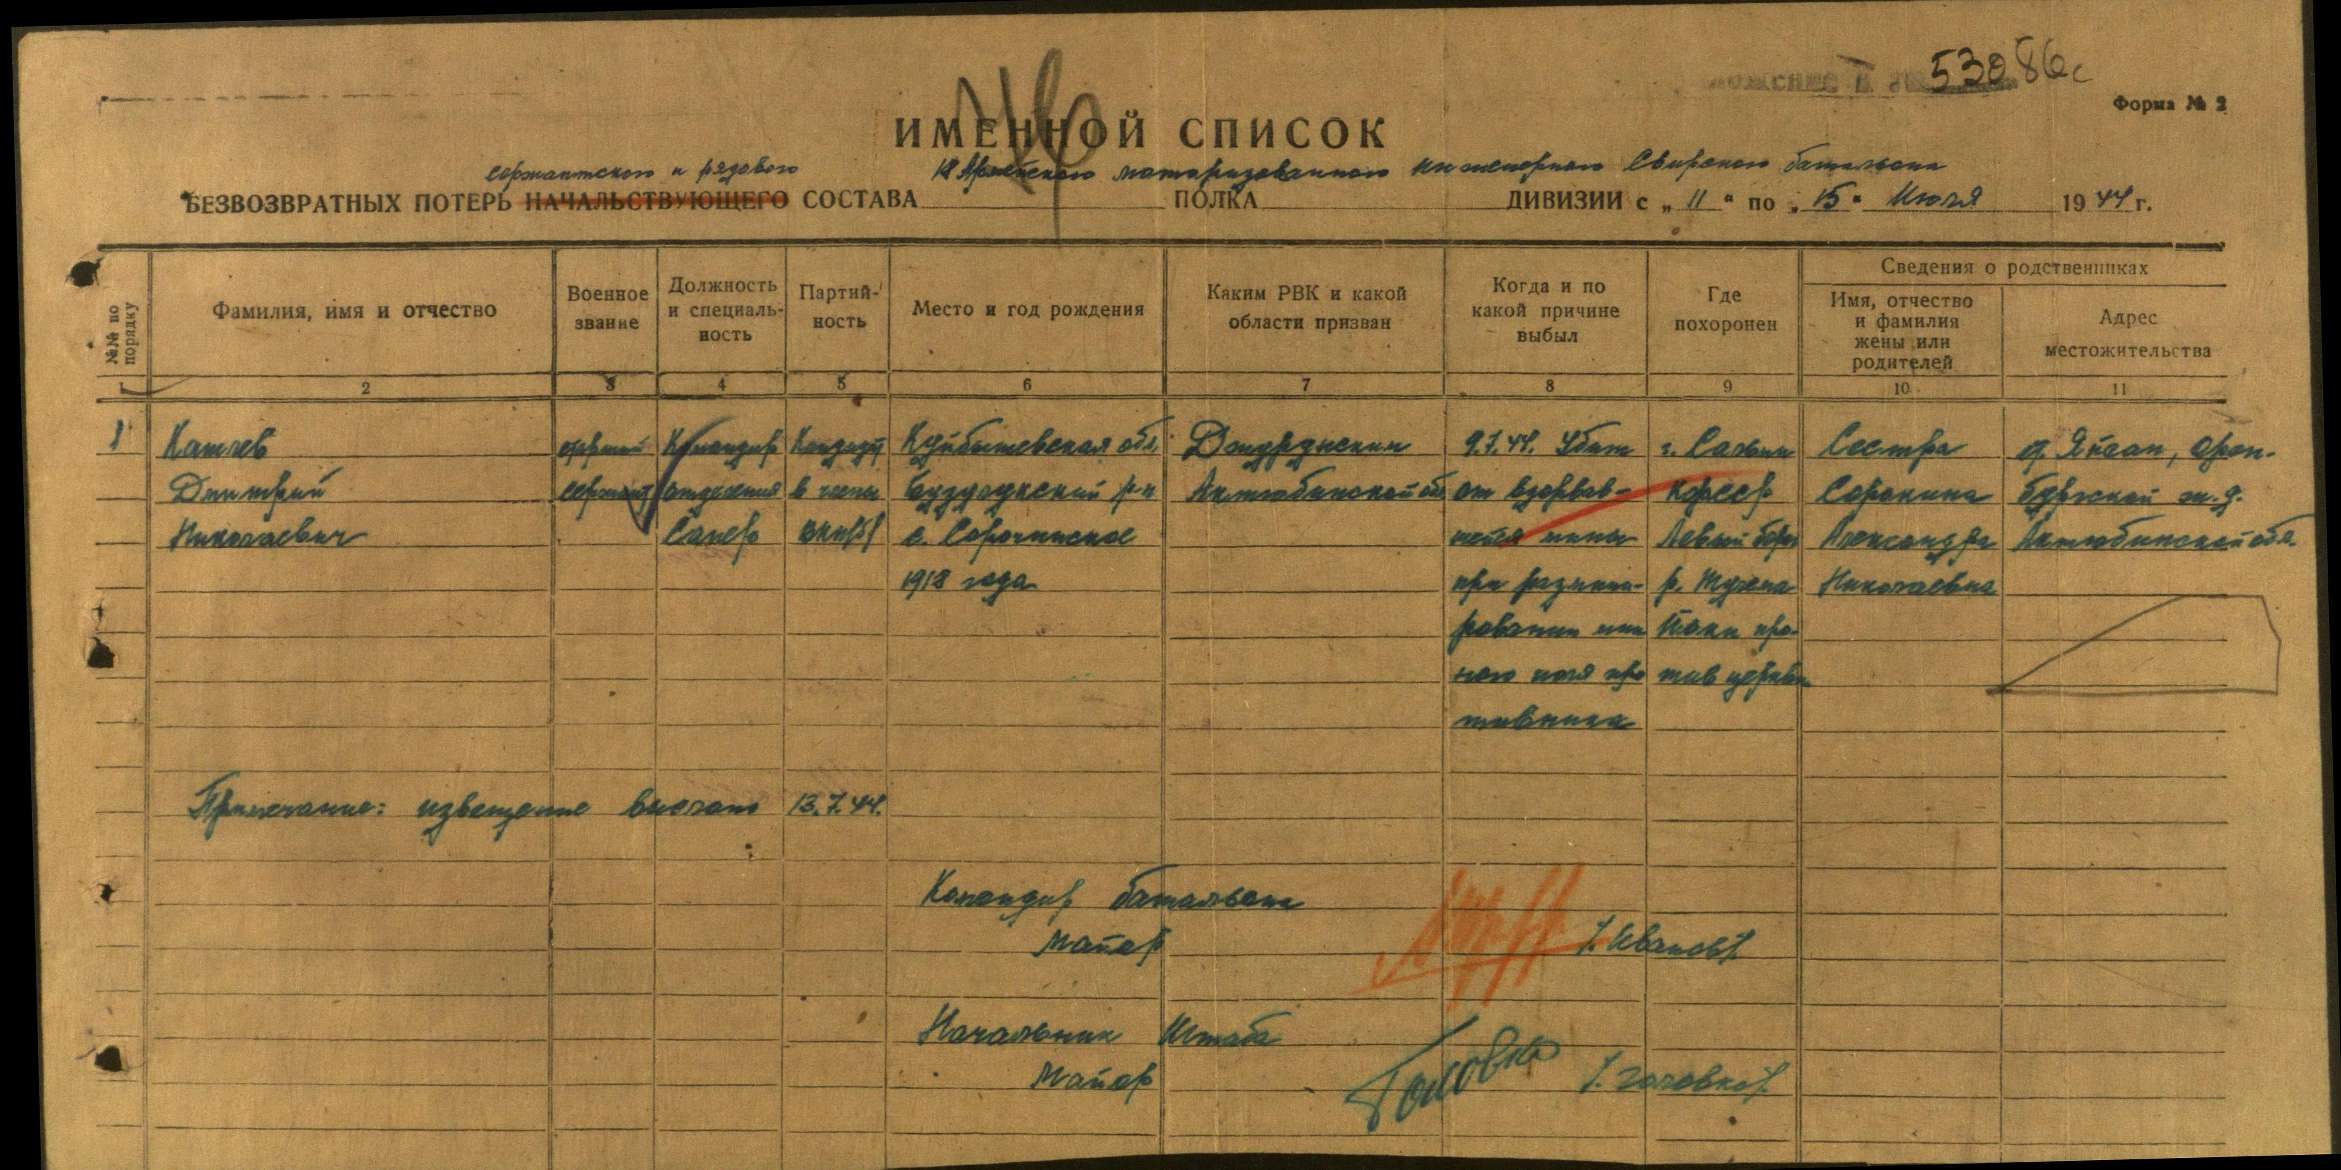 53086с
Форма № 2
ИМЕННОЙ СПИСОК
сержантского и рядового 18 Армейского моторизованного инженерного Свирского батальона
БЕЗВОЗВРАТНЫХ ПОТЕРЬ НАЧАЛЬСТВУЮЩЕГО СОСТАВА ПОЛКА ДИВИЗИИ с „ 11 “ по „ 15 “ Июля 19 44 г.
№№ по порядку
Фамилия, имя и отчество
Военное звание
Должность и специаль- ность
Партий- ность
Место и год рождения
Каким РВК и какой области призван
Когда и по какой причине выбыл
Где похоронен
Сведения о родственниках
Имя, отчество и фамилия жены или родителей
Адрес местожительства
2 3 4 5 6 7 8 9 10 11
1 Кашаев старший Командир Кандидат Куйбышевская обл. Джурунским 9.7.44. Убит г. Салми Сестра
Дмитрий сержант отделения в члены Бузулукский р-н Актюбинской обл от взорвав- КФССР Сорокина
Николаевич Сапер ВКП(б) с. Сорочинское шейся мины Левый берег Александра Актюбинской обл.
1918 года при размини- р. Николаевна
ровании мин йоки про-
ного поля про тив церкви
тивника
Примечание: извещение выслано 13.7.44.
Командир батальона
Майор /. Иванов/.
Начальник Штаба
Майор Головко /. Головко/.